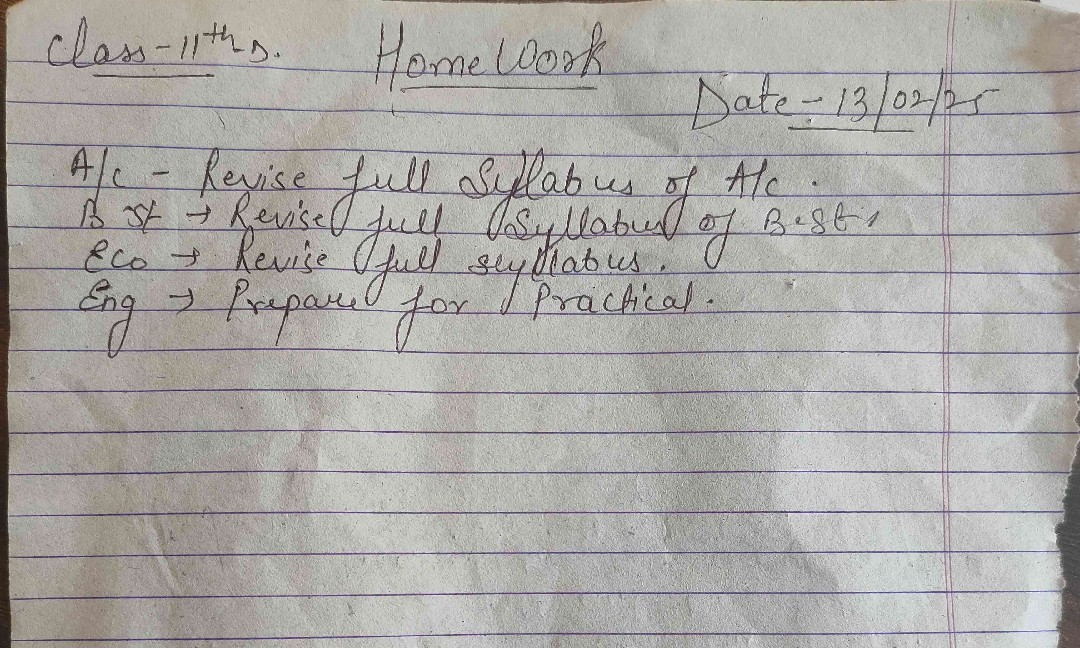 Class-11th D. Home Work
Date-13/02/25
A/c - Revise full Syllabus of A/c.
B st → Revise full Syllabus of B.st.
Eco → Revise full seyllabus.
Eng → Prepare for Practical.